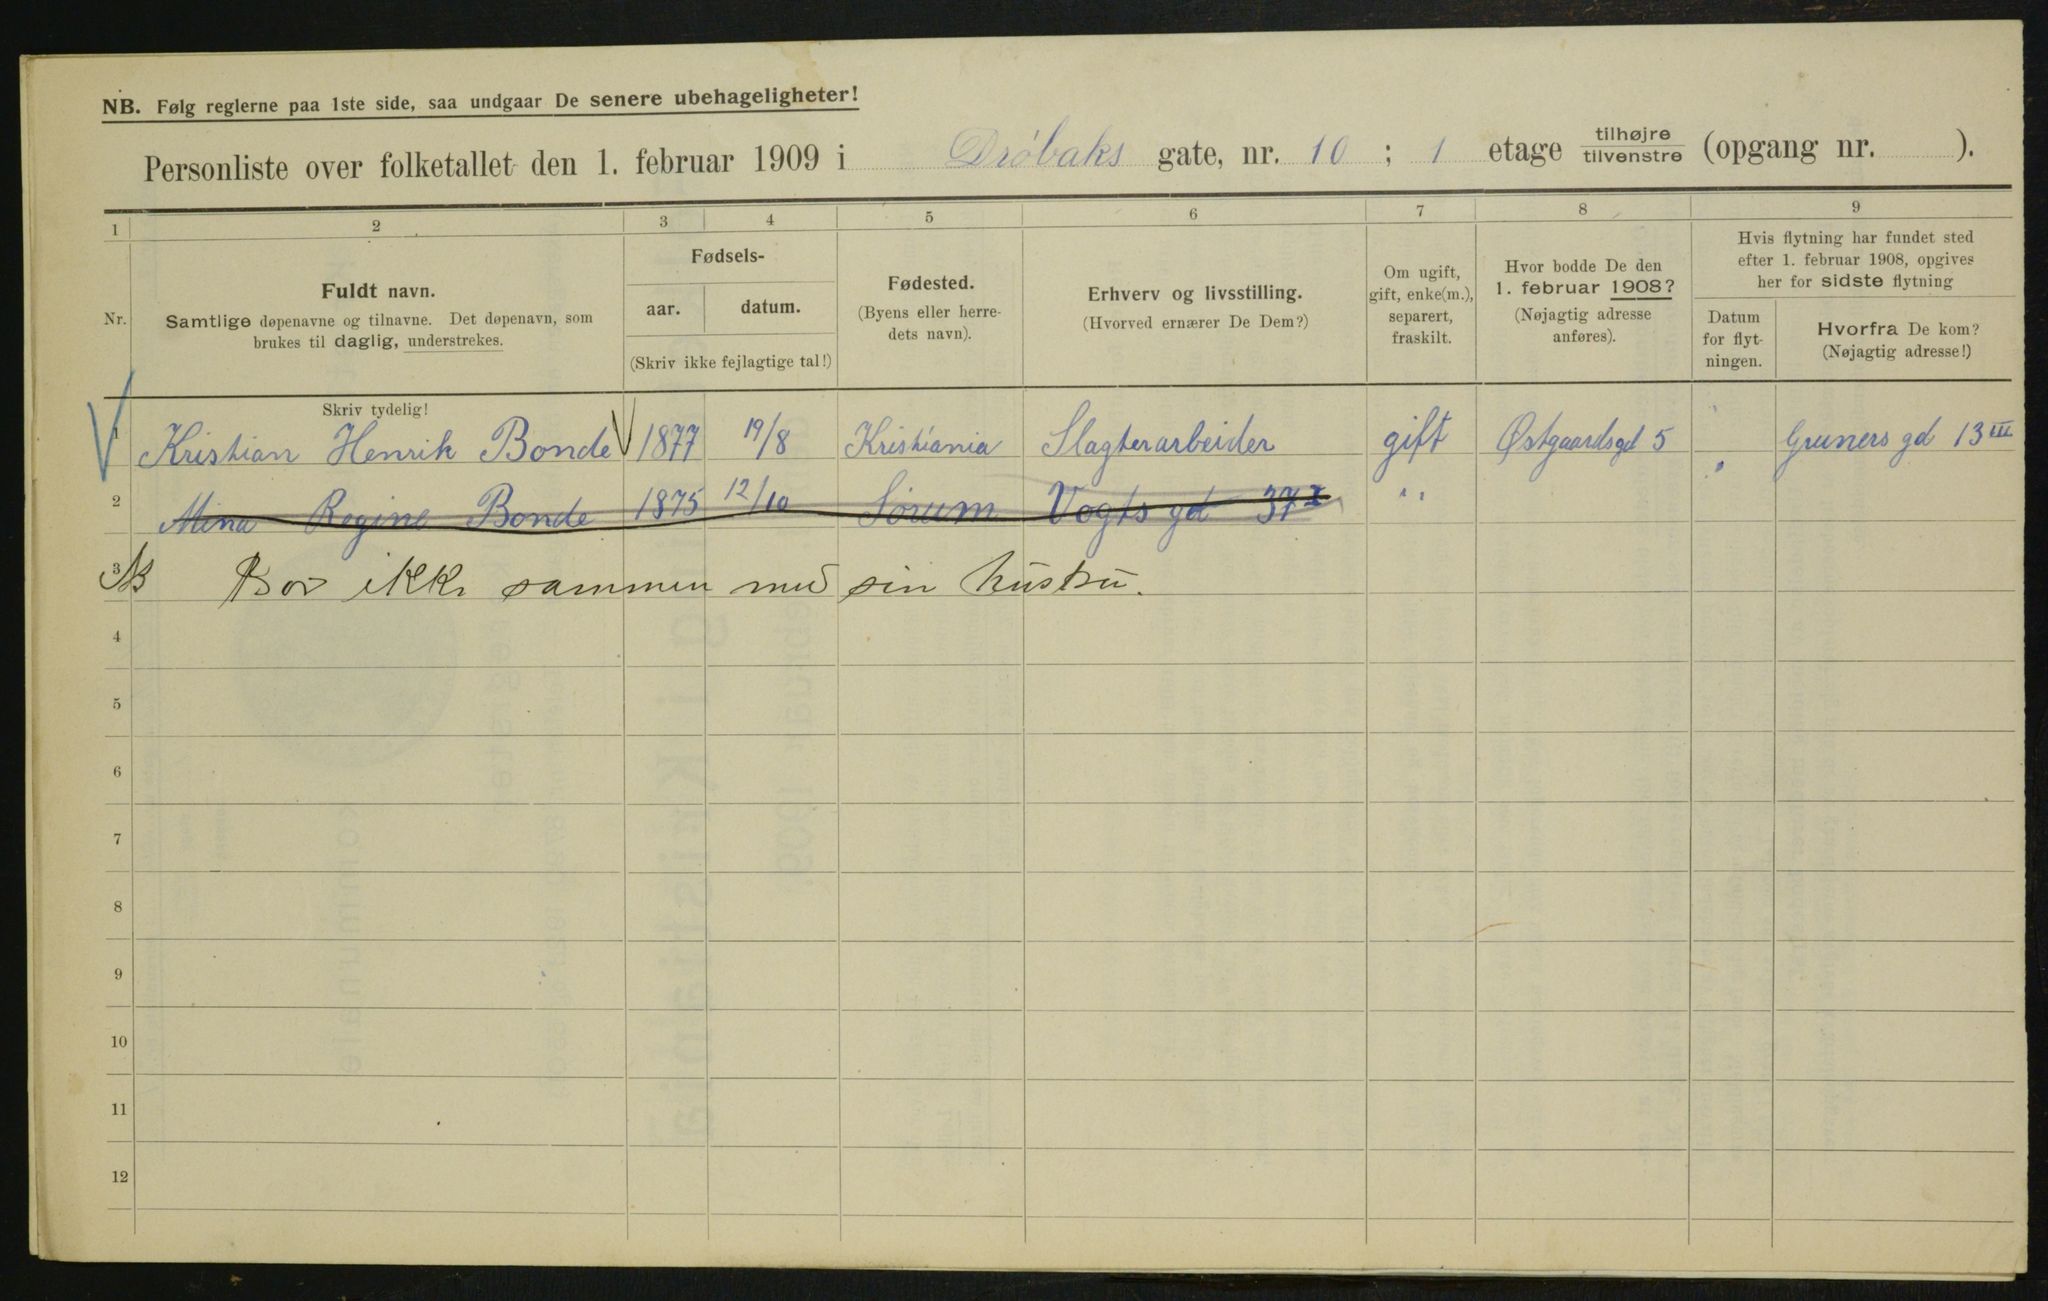 NB. Følg reglerne paa 1ste side, saa undgaar De senere ubehageligheter!
Personliste over folketallet den 1. februar 1909 i Drøbaks gate, nr. 10 ; 1 etage tilhøjre/tilvenstre (opgang nr. ).
1 2 3 4 5 6 7 8 9
Nr.
Fuldt navn.
Samtlige døpenavne og tilnavne. Det døpenavn, som
brukes til daglig, understrekes.
Fødsels-
aar. datum.
(Skriv ikke fejlagtige tal!)
Fødested.
(Byens eller herre-
dets navn).
Erhverv og livsstilling.
(Hvorved ernærer De Dem?)
Om ugift,
gift, enke(m.),
separert,
fraskilt.
Hvor bodde De den
1. februar 1908?
(Nøjagtig adresse
anføres).
Hvis flytning har fundet sted
efter 1. februar 1908, opgives
her for sidste flytning
Datum
for flyt-
ningen.
Hvorfra De kom?
(Nøjagtig adresse!)
Skriv tydelig!
1 Kristian Henrik Bonde 1877 19/8 Kristiania Slagterarbeider gift Østgaardsgd 5 Gruners gd 13 III
2 Mina Regine Bonde 1875 12/10 Sørum Vogts gd 37 I " "
3 NB Bor ikke sammen med sin hustru.
4
5
6
7
8
9
10
11
12